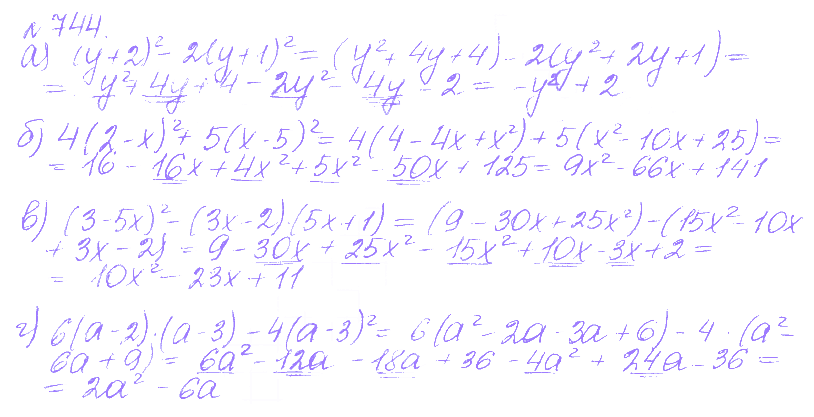 № 744.
а) (y+2)² - 2(y+1)² = (y² + 4y + 4) - 2(y² + 2y + 1) =
= y² + 4y + 4 - 2y² - 4y - 2 = -y² + 2
б) 4(2-x)² + 5(x-5)² = 4(4 - 4x + x²) + 5(x² - 10x + 25) =
= 16 - 16x + 4x² + 5x² - 50x + 125 = 9x² - 66x + 141
в) (3-5x)² - (3x-2)(5x+1) = (9 - 30x + 25x²) - (15x² - 10x
+ 3x - 2) = 9 - 30x + 25x² - 15x² + 10x - 3x + 2 =
= 10x² - 23x + 11
г) 6(a-2)·(a-3) - 4(a-3)² = 6(a² - 2a - 3a + 6) - 4·(a² -
6a + 9) = 6a² - 12a - 18a + 36 - 4a² + 24a - 36 =
= 2a² - 6a